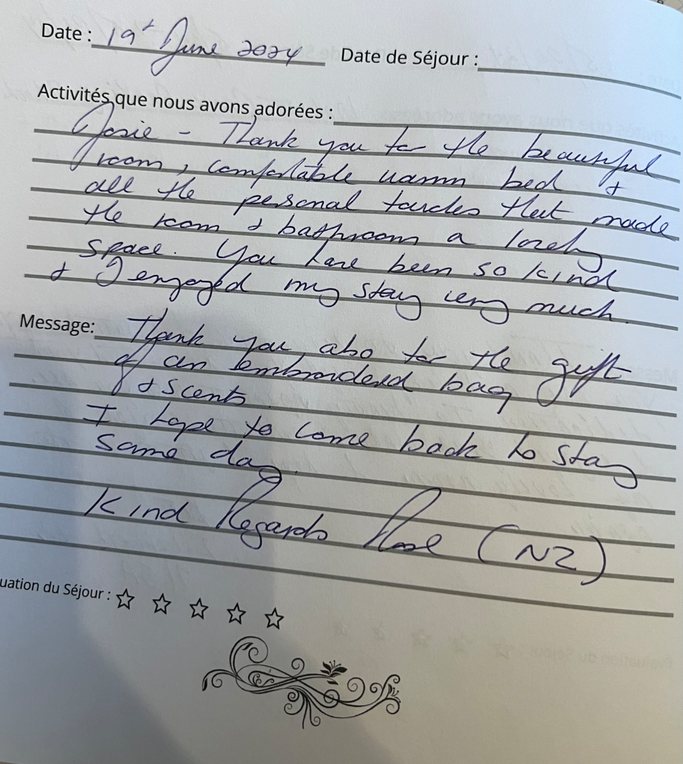 Date : 19t June 2024 Date de Séjour :
Activités que nous avons adorées :
Josie - Thank you for the beautiful
room, comfortable warm bed &
all the personal touches that made
the room & bathroom a lovely
space. You have been so kind
& I enjoyed my stay very much.
Message: Thank you also for the gift
of an embroidered bag
& scents.
I hope to come back to stay
some day.
Kind Regards Rose (NZ)
uation du Séjour : ☆ ☆ ☆ ☆ ☆